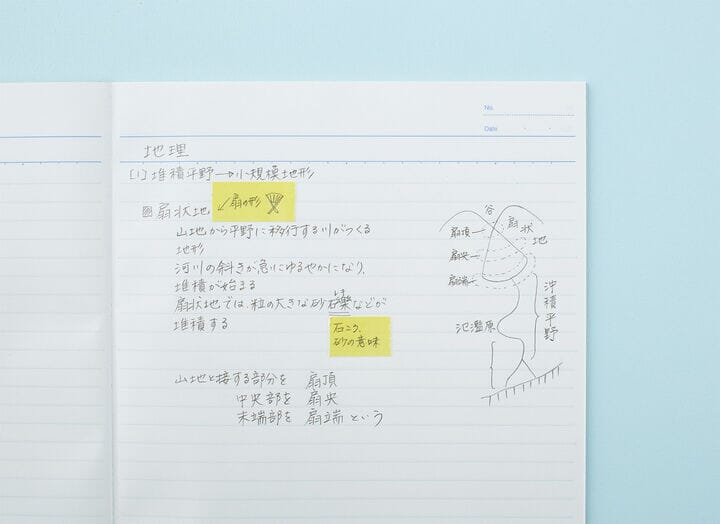 No.
Date
地理
[1] 堆積平野→小規模地形
図 扇状地
↙扇の形
山地から平野に移行する川がつくる
地形
河川の斜きが急にゆるやかになり、
堆積が始まる
扇状地では、粒の大きな砂石礫などが
れき
堆積する
石ころ、
砂の意味
山地と接する部分を 扇頂
中央部を 扇央
末端部を 扇端 という
谷
扇状地
扇頂
扇央
扇端
沖積平野
氾濫原